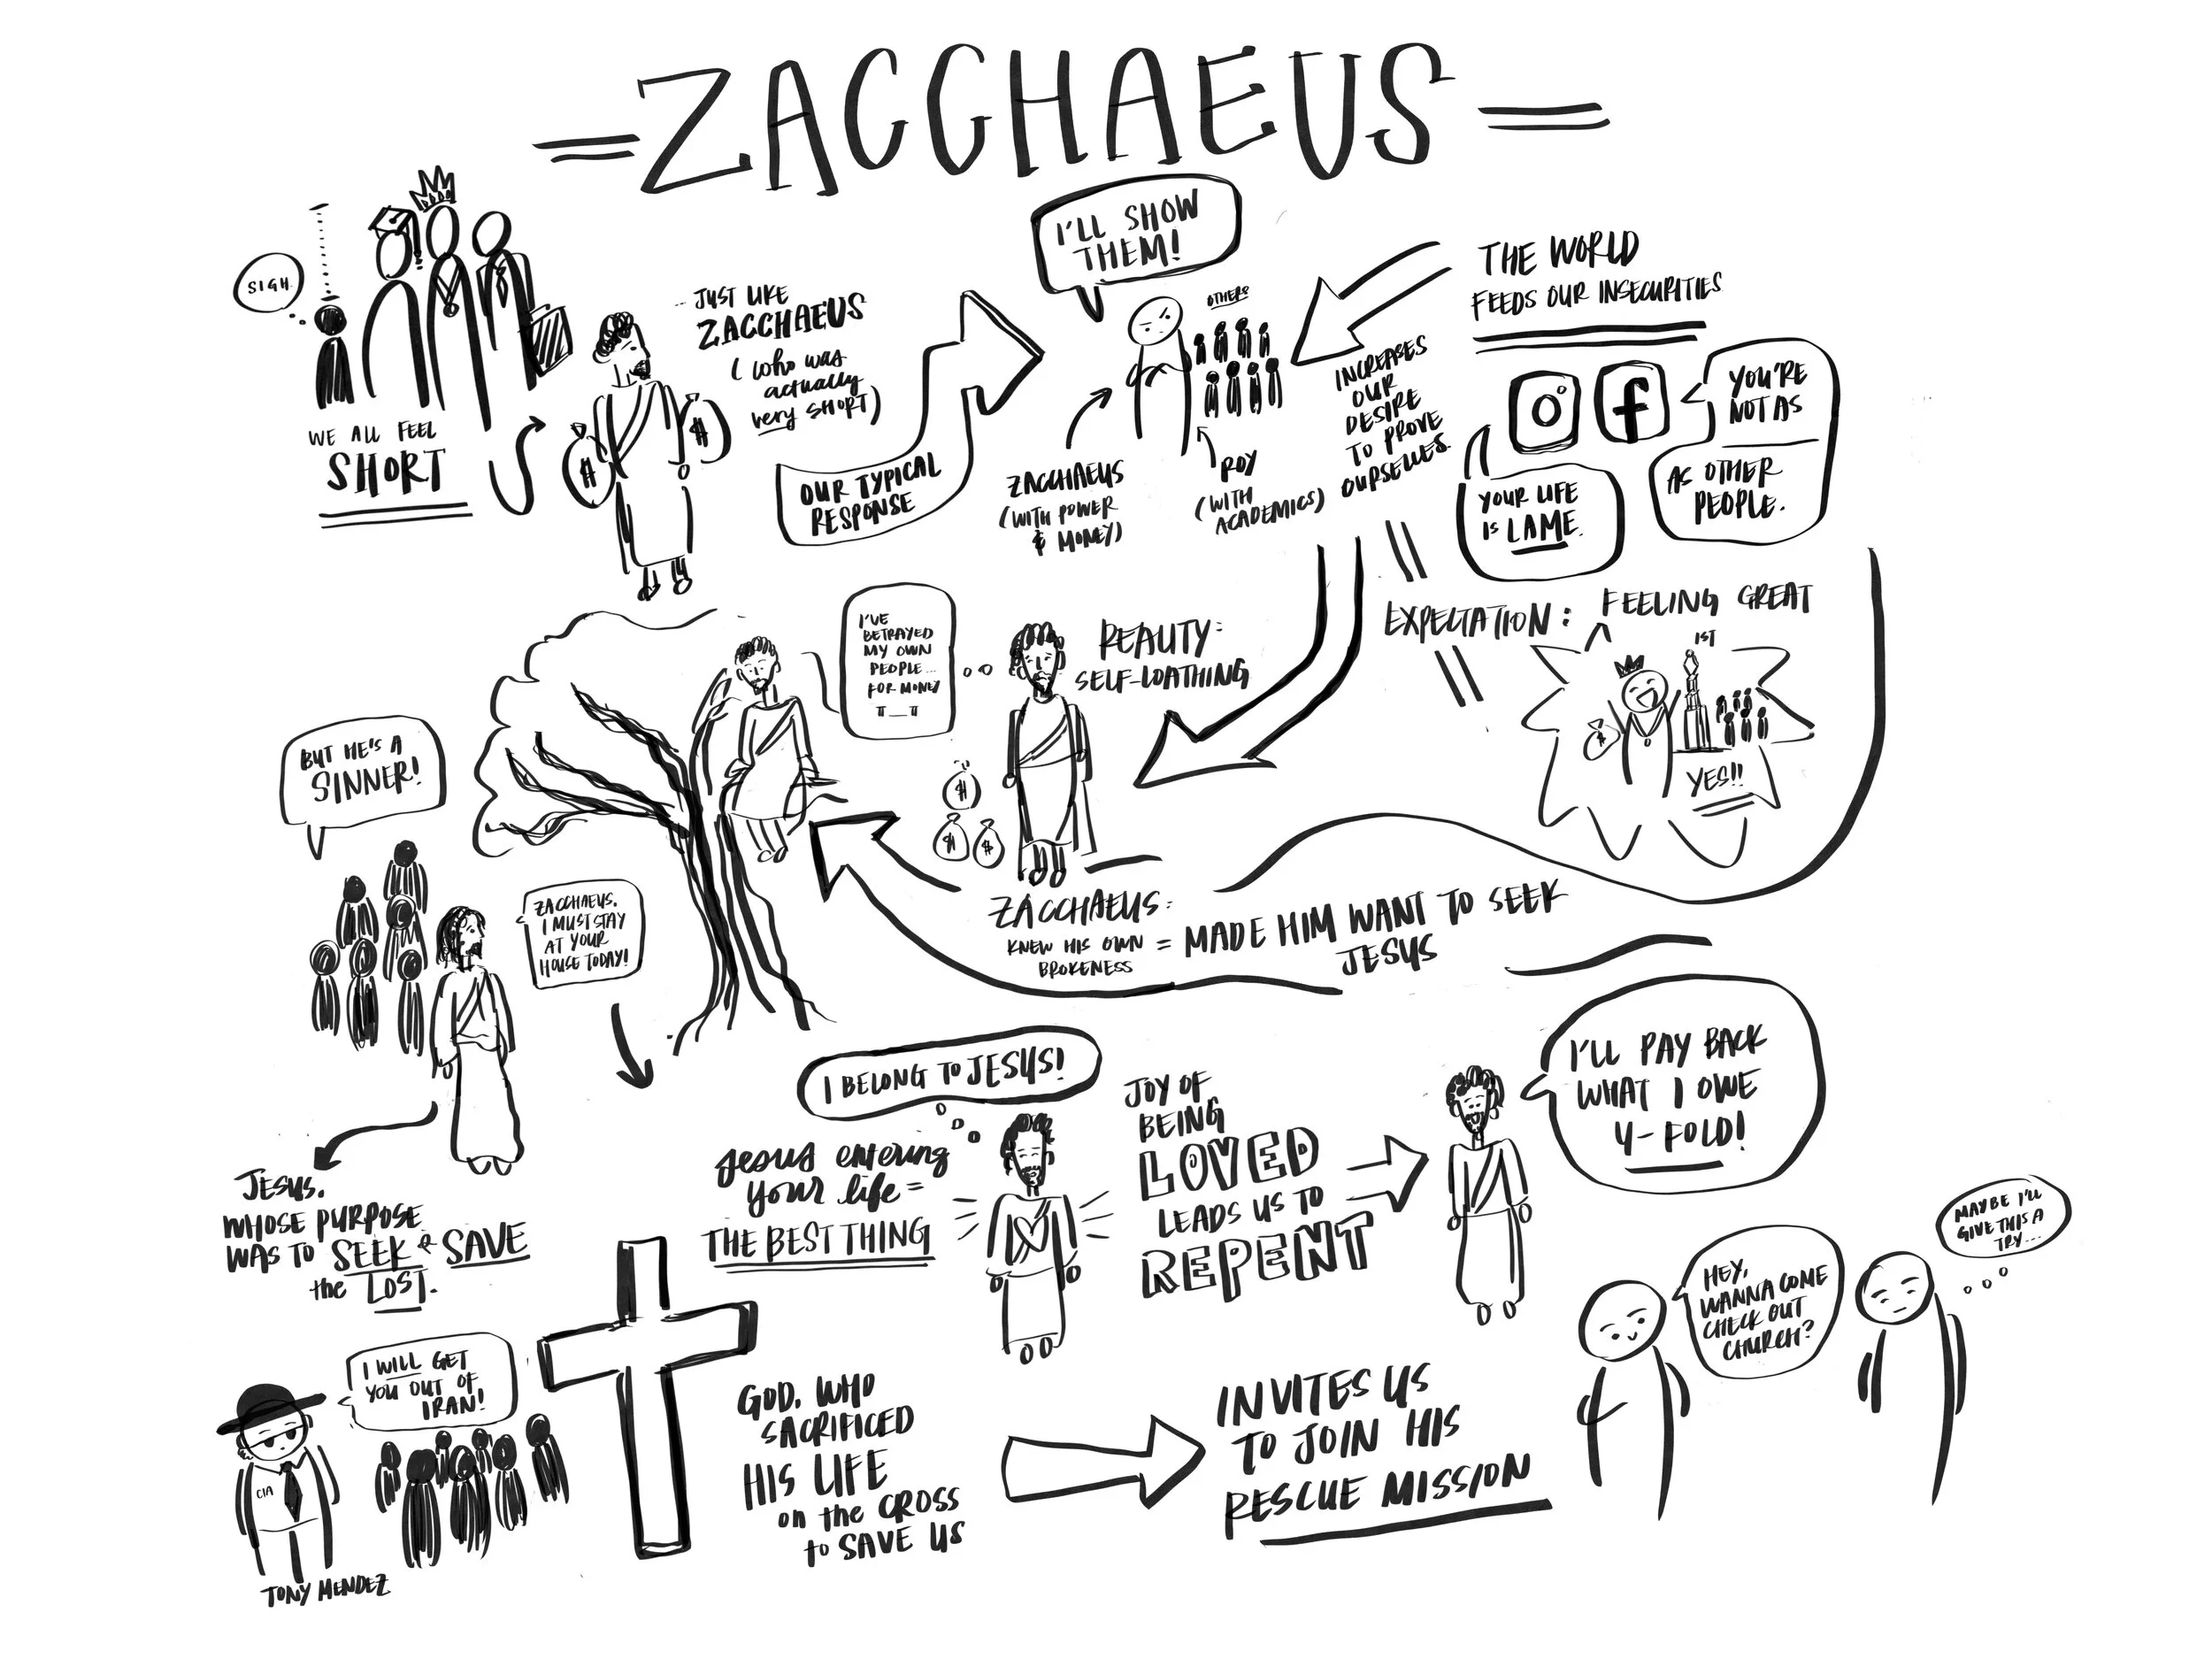 ZACCHAEUS
SIGH.
WE ALL FEEL
SHORT
... JUST LIKE
ZACCHAEUS
(who was
actually
very SHORT)
$
$
OUR TYPICAL
RESPONSE
I'LL SHOW
THEM!
OTHERS
ZACCHAEUS
(WITH POWER
& MONEY)
ROY
(WITH
ACADEMICS)
THE WORLD
FEEDS OUR INSECURITIES
INCREASES
OUR
DESIRE
TO PROVE
OURSELVES.
f
YOU'RE
NOT AS
AS OTHER
PEOPLE.
YOUR LIFE
IS LAME.
EXPECTATION: FEELING GREAT
1ST
$
YES!!
REALITY:
SELF-LOATHING
I'VE
BETRAYED
MY OWN
PEOPLE...
FOR MONEY
π_π
$
$
$
ZACCHAEUS:
KNEW HIS OWN
BROKENESS
= MADE HIM WANT TO SEEK
JESUS
BUT HE'S A
SINNER!
ZACCHAEUS,
I MUST STAY
AT YOUR
HOUSE TODAY!
JESUS,
WHOSE PURPOSE
WAS TO SEEK & SAVE
the LOST.
I BELONG TO JESUS!
Jesus entering
your life =
THE BEST THING
JOY OF
BEING
LOVED
LEADS US TO
REPENT
I'LL PAY BACK
WHAT I OWE
4-FOLD!
I WILL GET
YOU OUT OF
IRAN!
CIA
TONY MENDEZ
GOD, WHO
SACRIFICED
HIS LIFE
on the CROSS
to SAVE US
INVITES US
TO JOIN HIS
RESCUE MISSION
HEY,
WANNA COME
CHECK OUT
CHURCH?
MAYBE I'LL
GIVE THIS A
TRY...